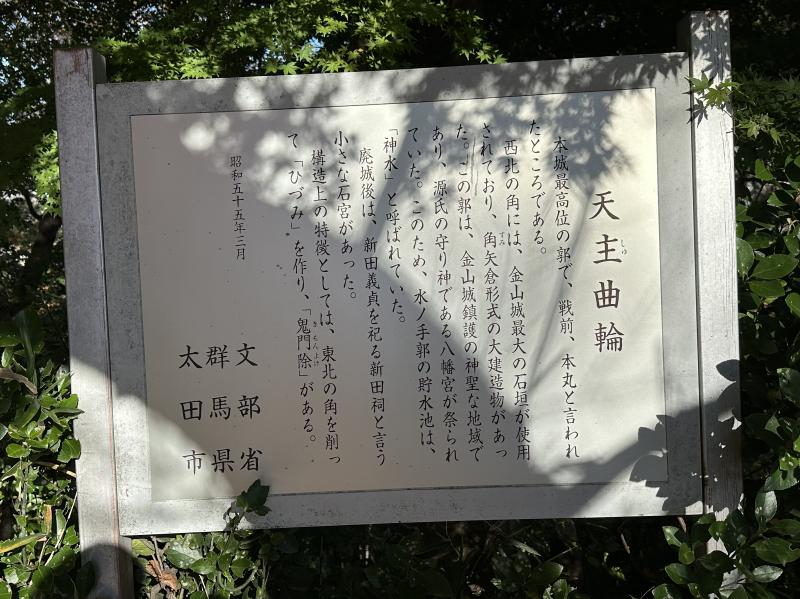 天主曲輪
しゅ
本城最高位の郭で、戦前、本丸と言われ
たところである。
西北の角には、金山城最大の石垣が使用
されており、角矢倉形式の大建造物があっ
すみ
た。この郭は、金山城鎮護の神聖な地域で
あり、源氏の守り神である八幡宮が祭られ
ていた。このため、水ノ手郭の貯水池は、
「神水」と呼ばれていた。
廃城後は、新田義貞を祀る新田祠と言う
小さな石宮があった。
構造上の特徴としては、東北の角を削っ
て「ひづみ」を作り、「鬼門除」がある。
きもんよけ
昭和五十五年三月
文部省
群馬県
太田市